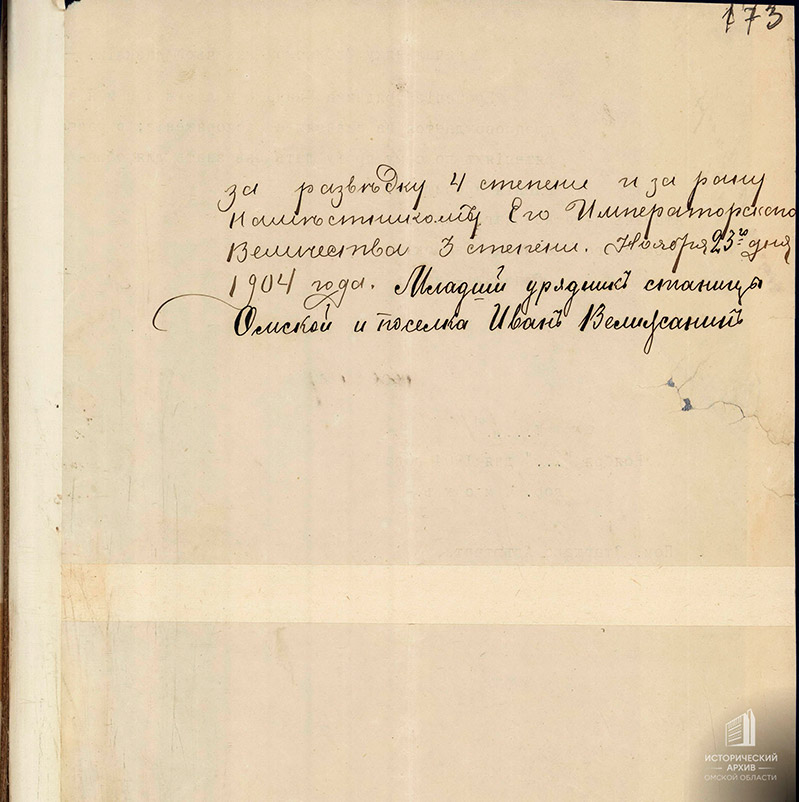 173
за развѣдку 4 степени и за рану
Намѣстникомъ Его Императорскаго
Величества 3 степени. Ноября 23го дня
1904 года. Младшій урядникъ станицы
Омской и поселка Иванъ Велижанинъ
ИСТОРИЧЕСКИЙ
АРХИВ
ОМСКОЙ ОБЛАСТИ